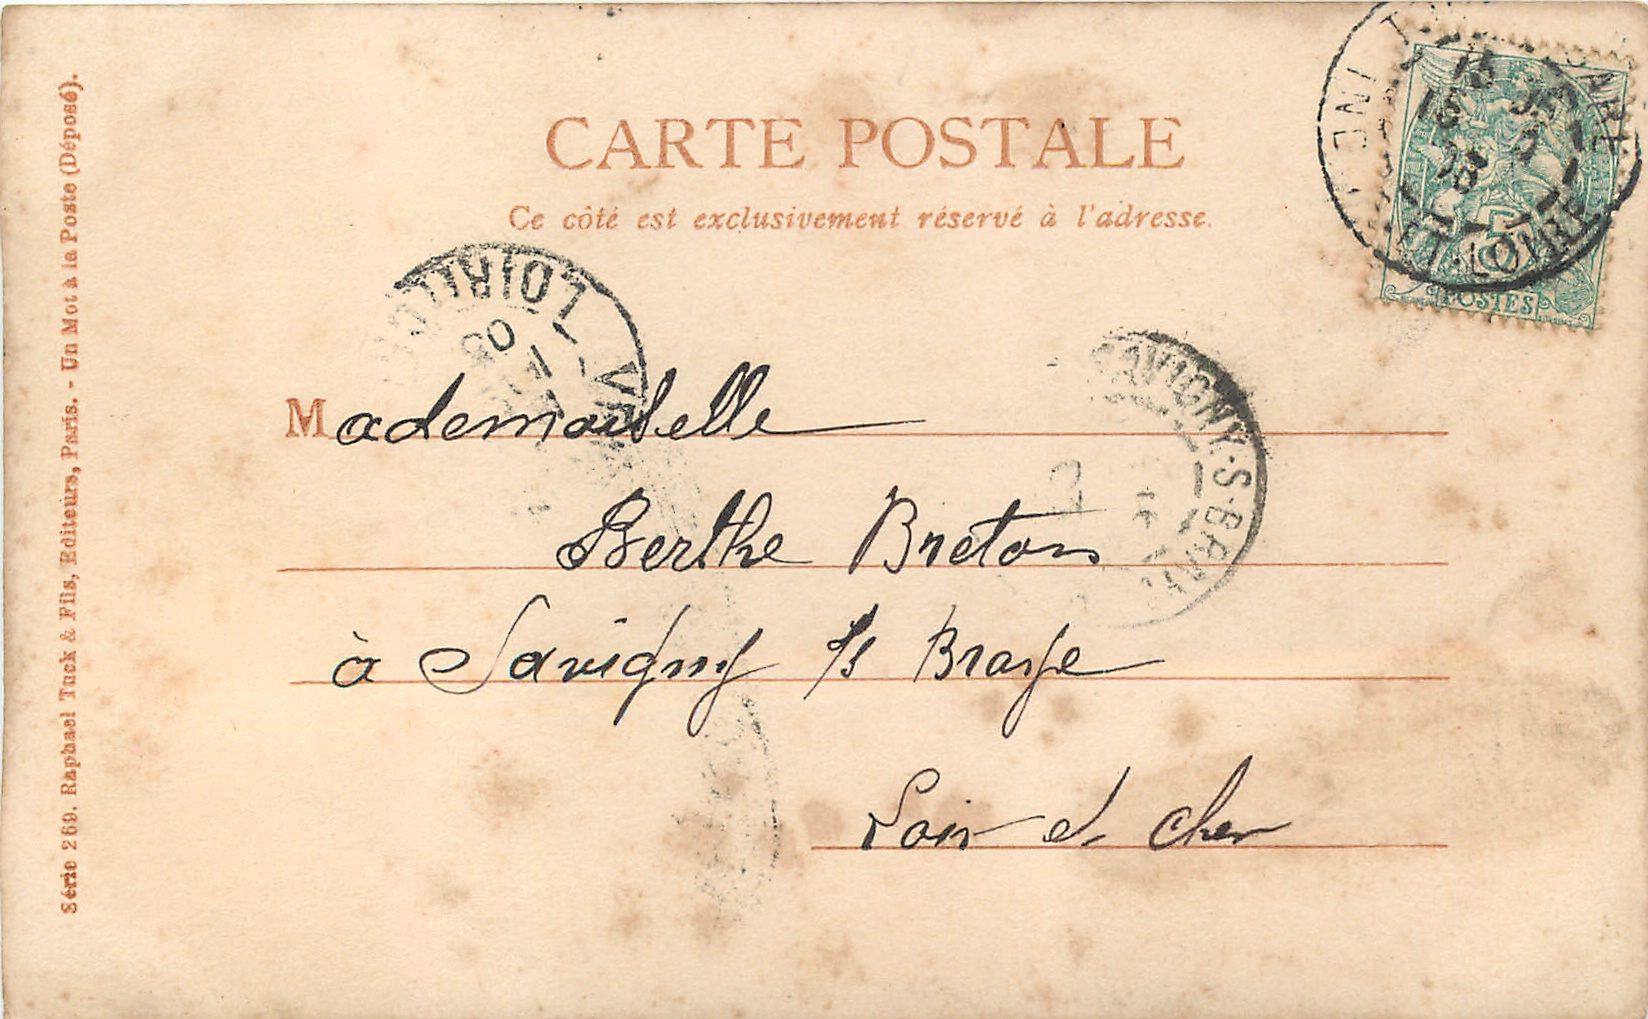 CARTE POSTALE
Ce côté est exclusivement réservé à l'adresse.
Mademoiselle
Berthe Breton
à Savigny s/s Braye
Loir et Cher
Série 269. Raphael Tuck & Fils, Editeurs, Paris. - Un Mot à la Poste (Déposé).
SAVIGNY-S-BRAYE
POSTES
ET-LOIRE
05